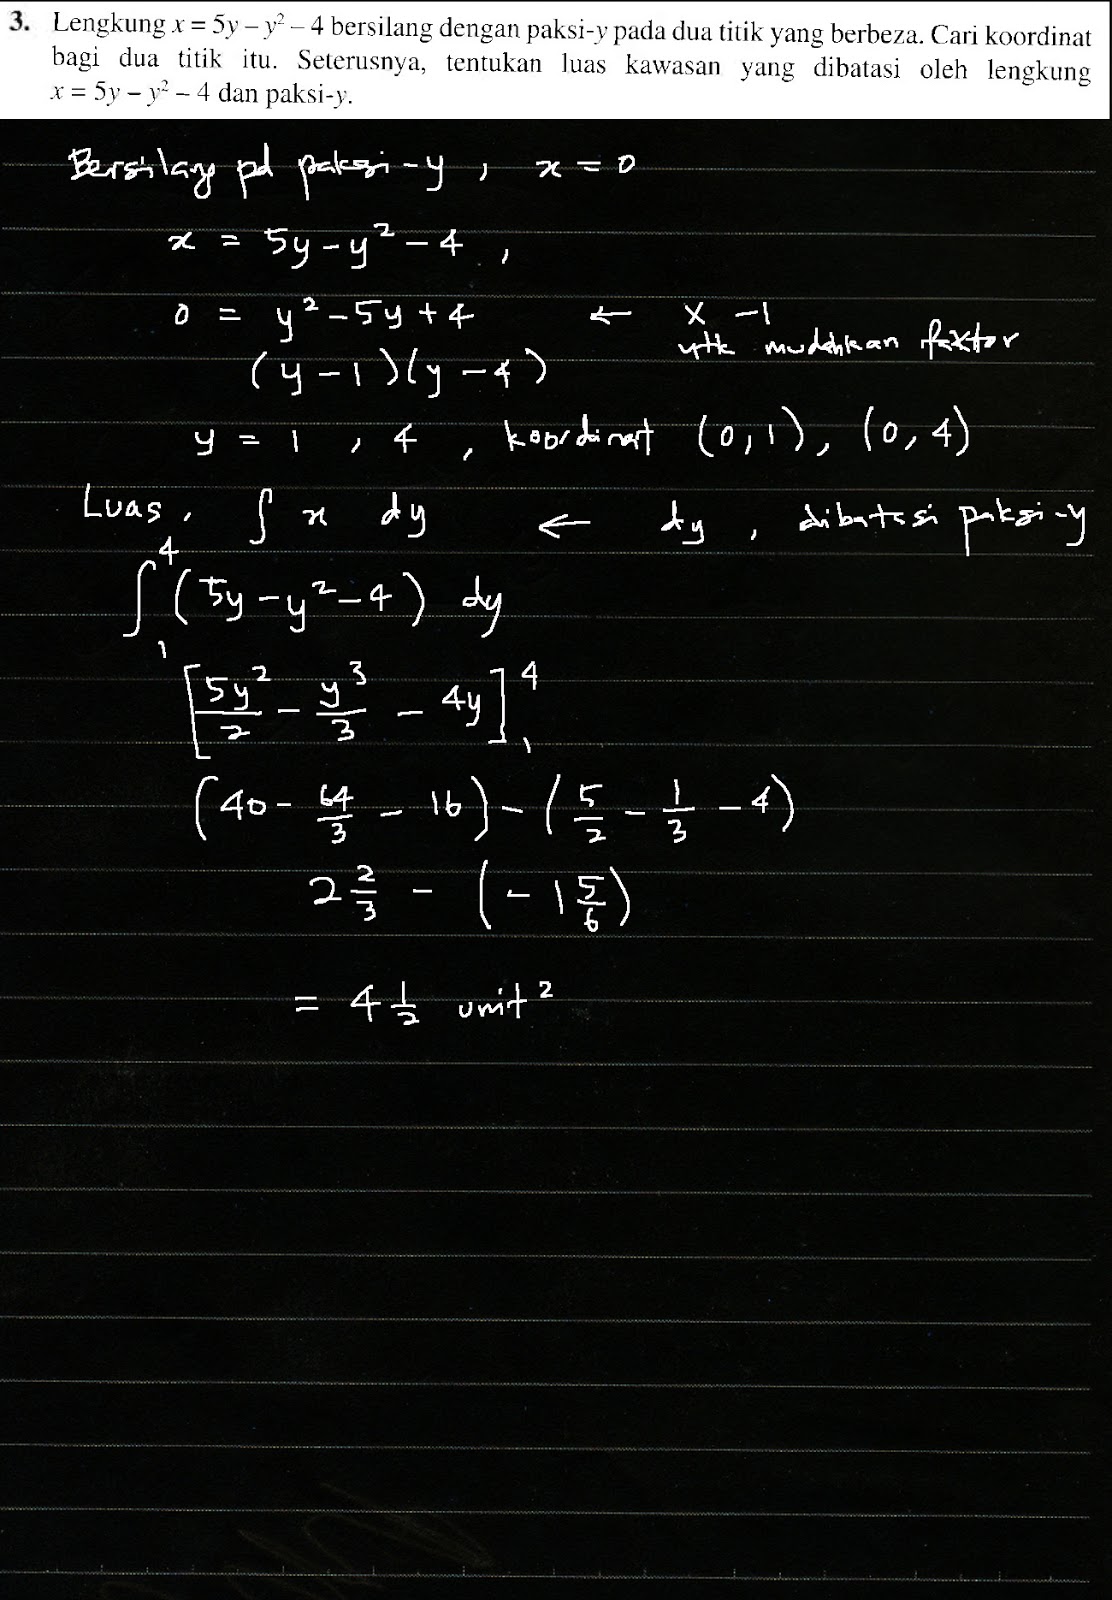 3. Lengkung x = 5y – y² – 4 bersilang dengan paksi-y pada dua titik yang berbeza. Cari koordinat
bagi dua titik itu. Seterusnya, tentukan luas kawasan yang dibatasi oleh lengkung
x = 5y – y² – 4 dan paksi-y.
Bersilang pd paksi-y, x = 0
x = 5y - y² - 4,
0 = y² - 5y + 4 ← x -1
utk mudahkan faktor
(y - 1)(y - 4)
y = 1, 4, koordinat (0,1), (0,4)
Luas, ∫ x dy ← dy, dibatasi paksi-y
∫₁⁴ (5y - y² - 4) dy
[5y²/2 - y³/3 - 4y]₁⁴
(40 - 64/3 - 16) - (5/2 - 1/3 - 4)
2 2/3 - (-1 5/6)
= 4 1/2 unit²